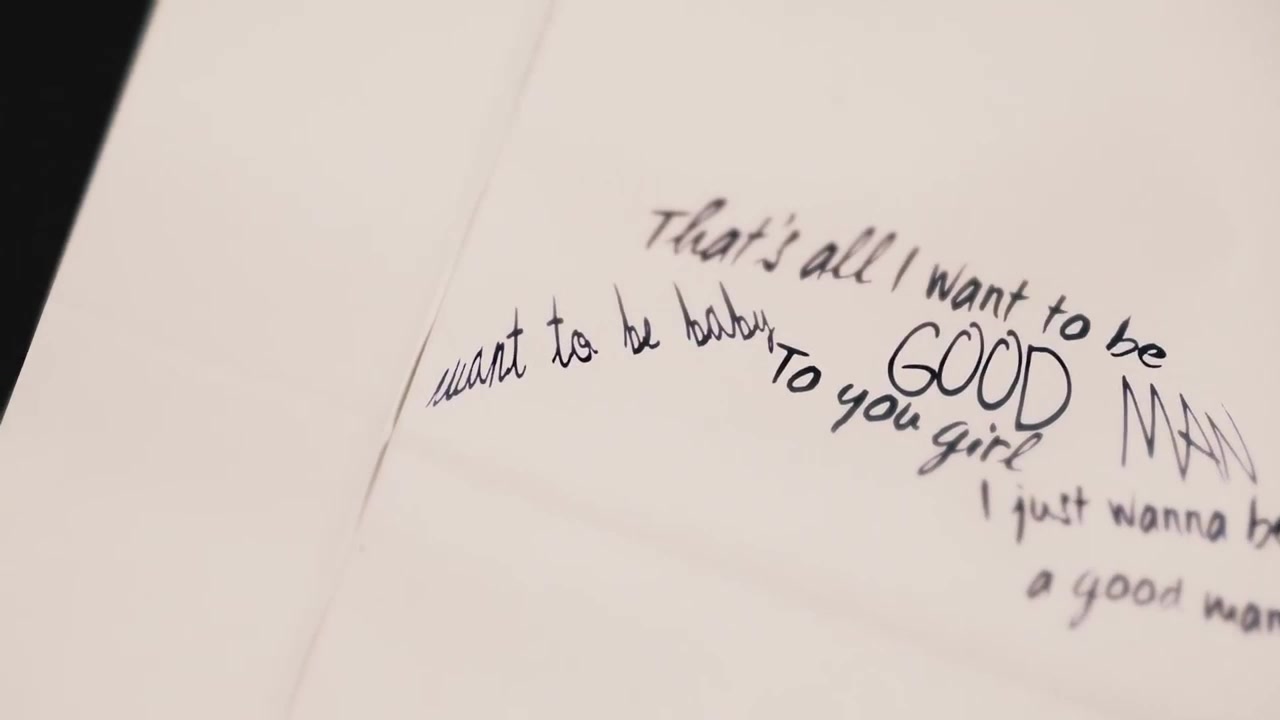 That's all I want to be
want to be baby
GOOD MAN
To you girl
I just wanna be
a good man